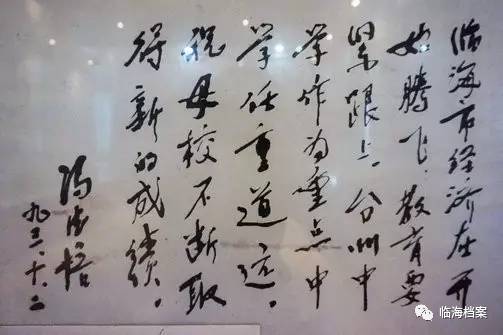 临海市经济在开
始腾飞。教育要
紧跟上。台州中
学作为重点中
学任重道远。
祝母校不断取
得新的成绩。
冯德培
九三·十·二
临海档案